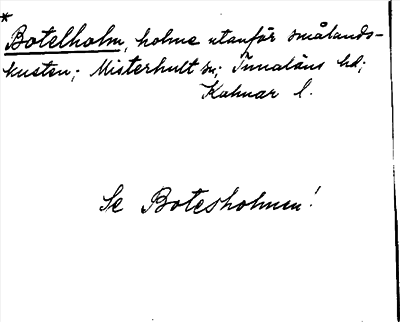 *
Botelholm, holme utanför smålands-
kusten; Misterhult sn; Tunaläns hd;
Kalmar l.
Se Botesholmen!